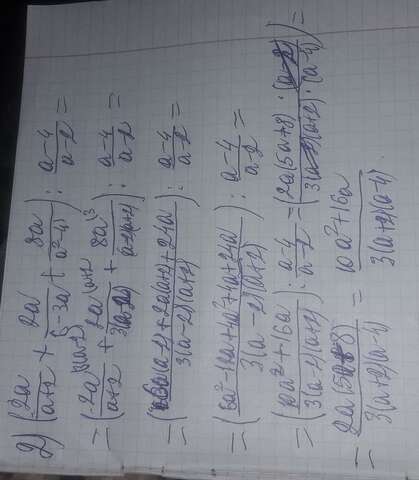 2) (2a/(a+2) + 2a/(6-3a) + 8a/(a²-4)) : (a-4)/(a-2) =
= (2a/(a+2) + 2a/(3(a-2)) + 8a/((a-2)(a+2))) : (a-4)/(a-2) =
= (6a(a-2)+2a(a+2)+24a)/(3(a-2)(a+2)) : (a-4)/(a-2) =
= (6a²-12a+4a²+4a+24a)/(3(a-2)(a+2)) : (a-4)/(a-2) =
= (10a²+16a)/(3(a-2)(a+2)) : (a-4)/(a-2) = (2a(5a+8)·(a-2))/(3(a-2)(a+2)·(a-4)) =
= 2a(5a+8)/(3(a+2)(a-4)) = (10a²+16a)/(3(a+2)(a-4)).